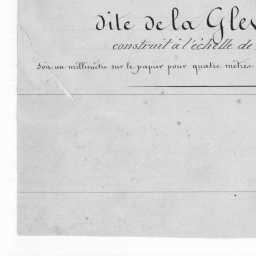 dite de la Glev
construit à l'échelle de
Soit un millimètre sur le papier pour quatre mètres